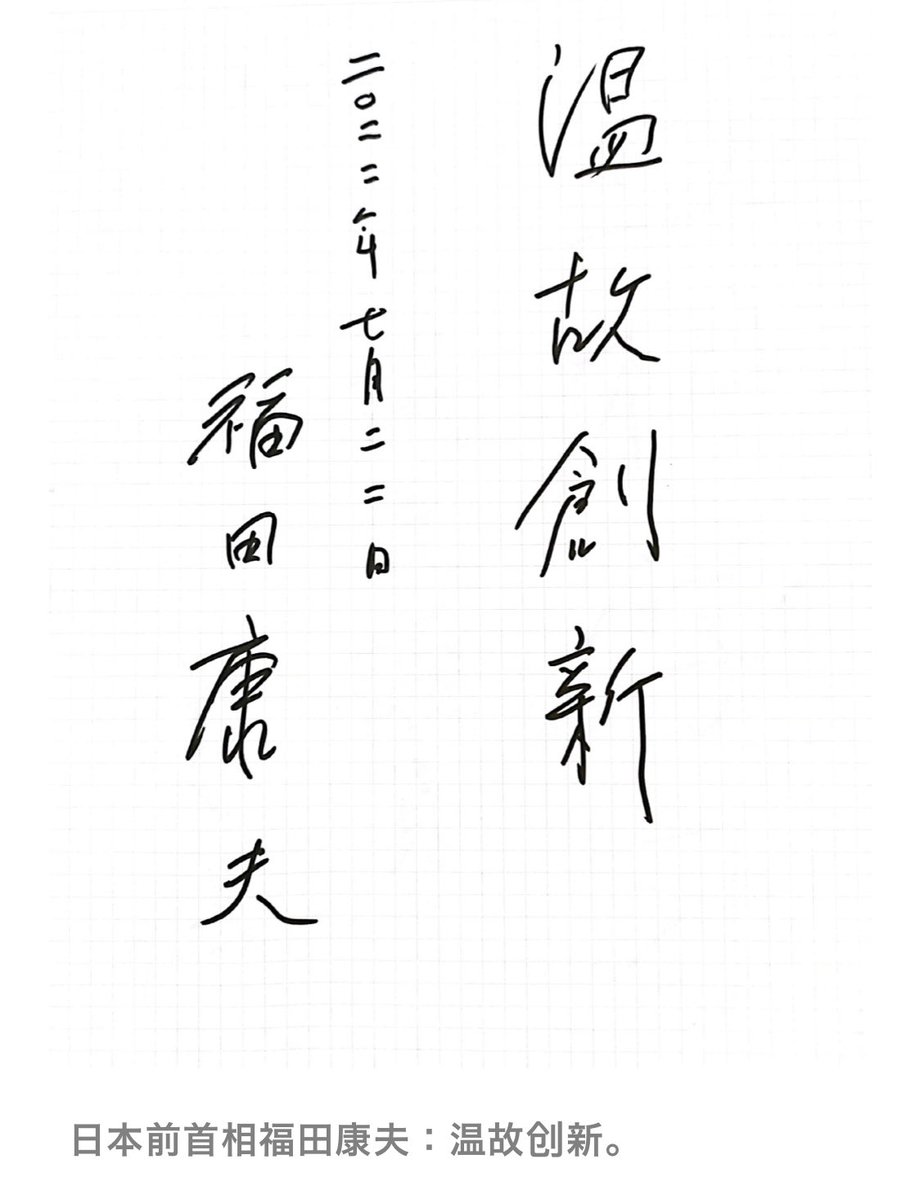 温故創新
二〇二二年七月二二日
福田康夫
日本前首相福田康夫：温故创新。